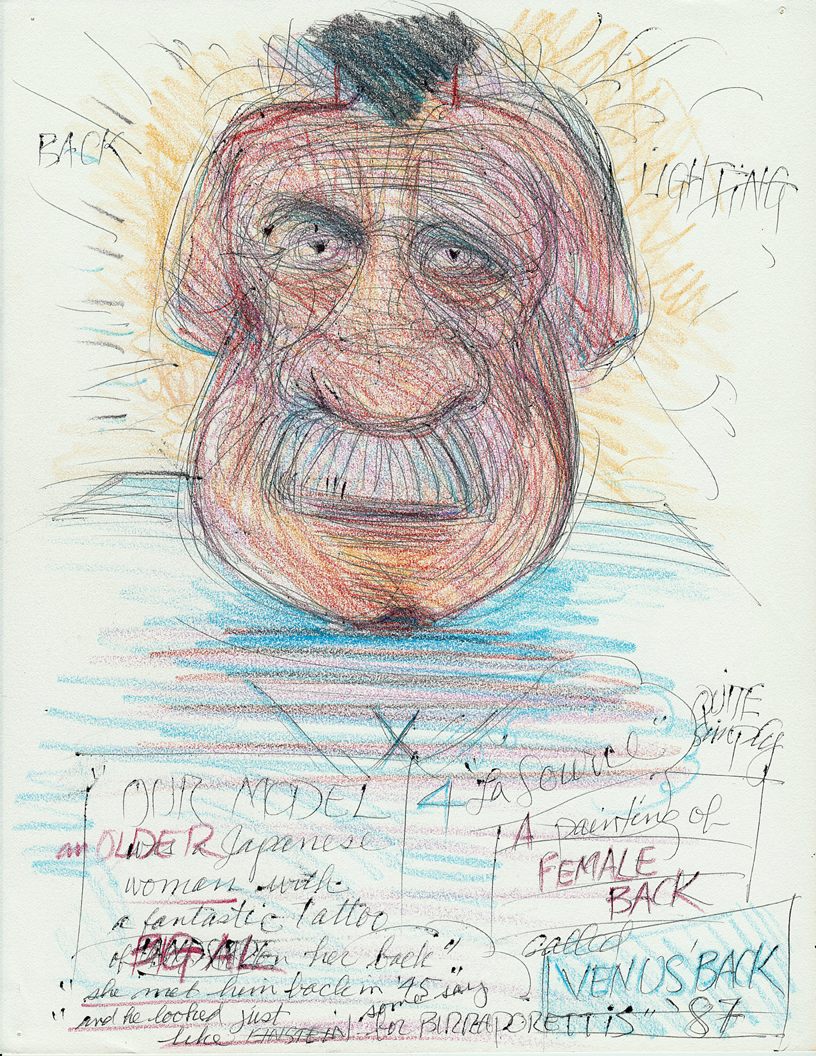 BACK
LIGHTING
QUITE
Simply
OUR MODEL
an OLDER Japanese
woman with
a fantastic Tattoo
of BIG AL on her back"
"she met him back in '45" some say
and he looked just
like EINSTEIN
4 "La Source"
A painting of
FEMALE
BACK
called
VENUS' BACK
for BIRRAPORETTIS" '87